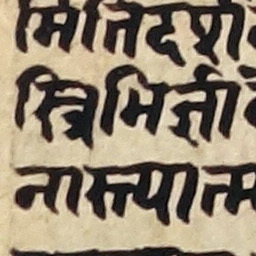 मितिदर्शी
स्त्रिभिर्ज्ञा
नास्त्यात्म